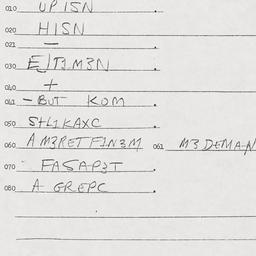 010 UPISN
020 HISN
021 —
030 EJTIM3N
040 +
041 - BUT KOM
050 S+L1KAXC
060 A M3RET F1N3M 061 M3 DEMAN
070 FASAP3T
080 A GREPC